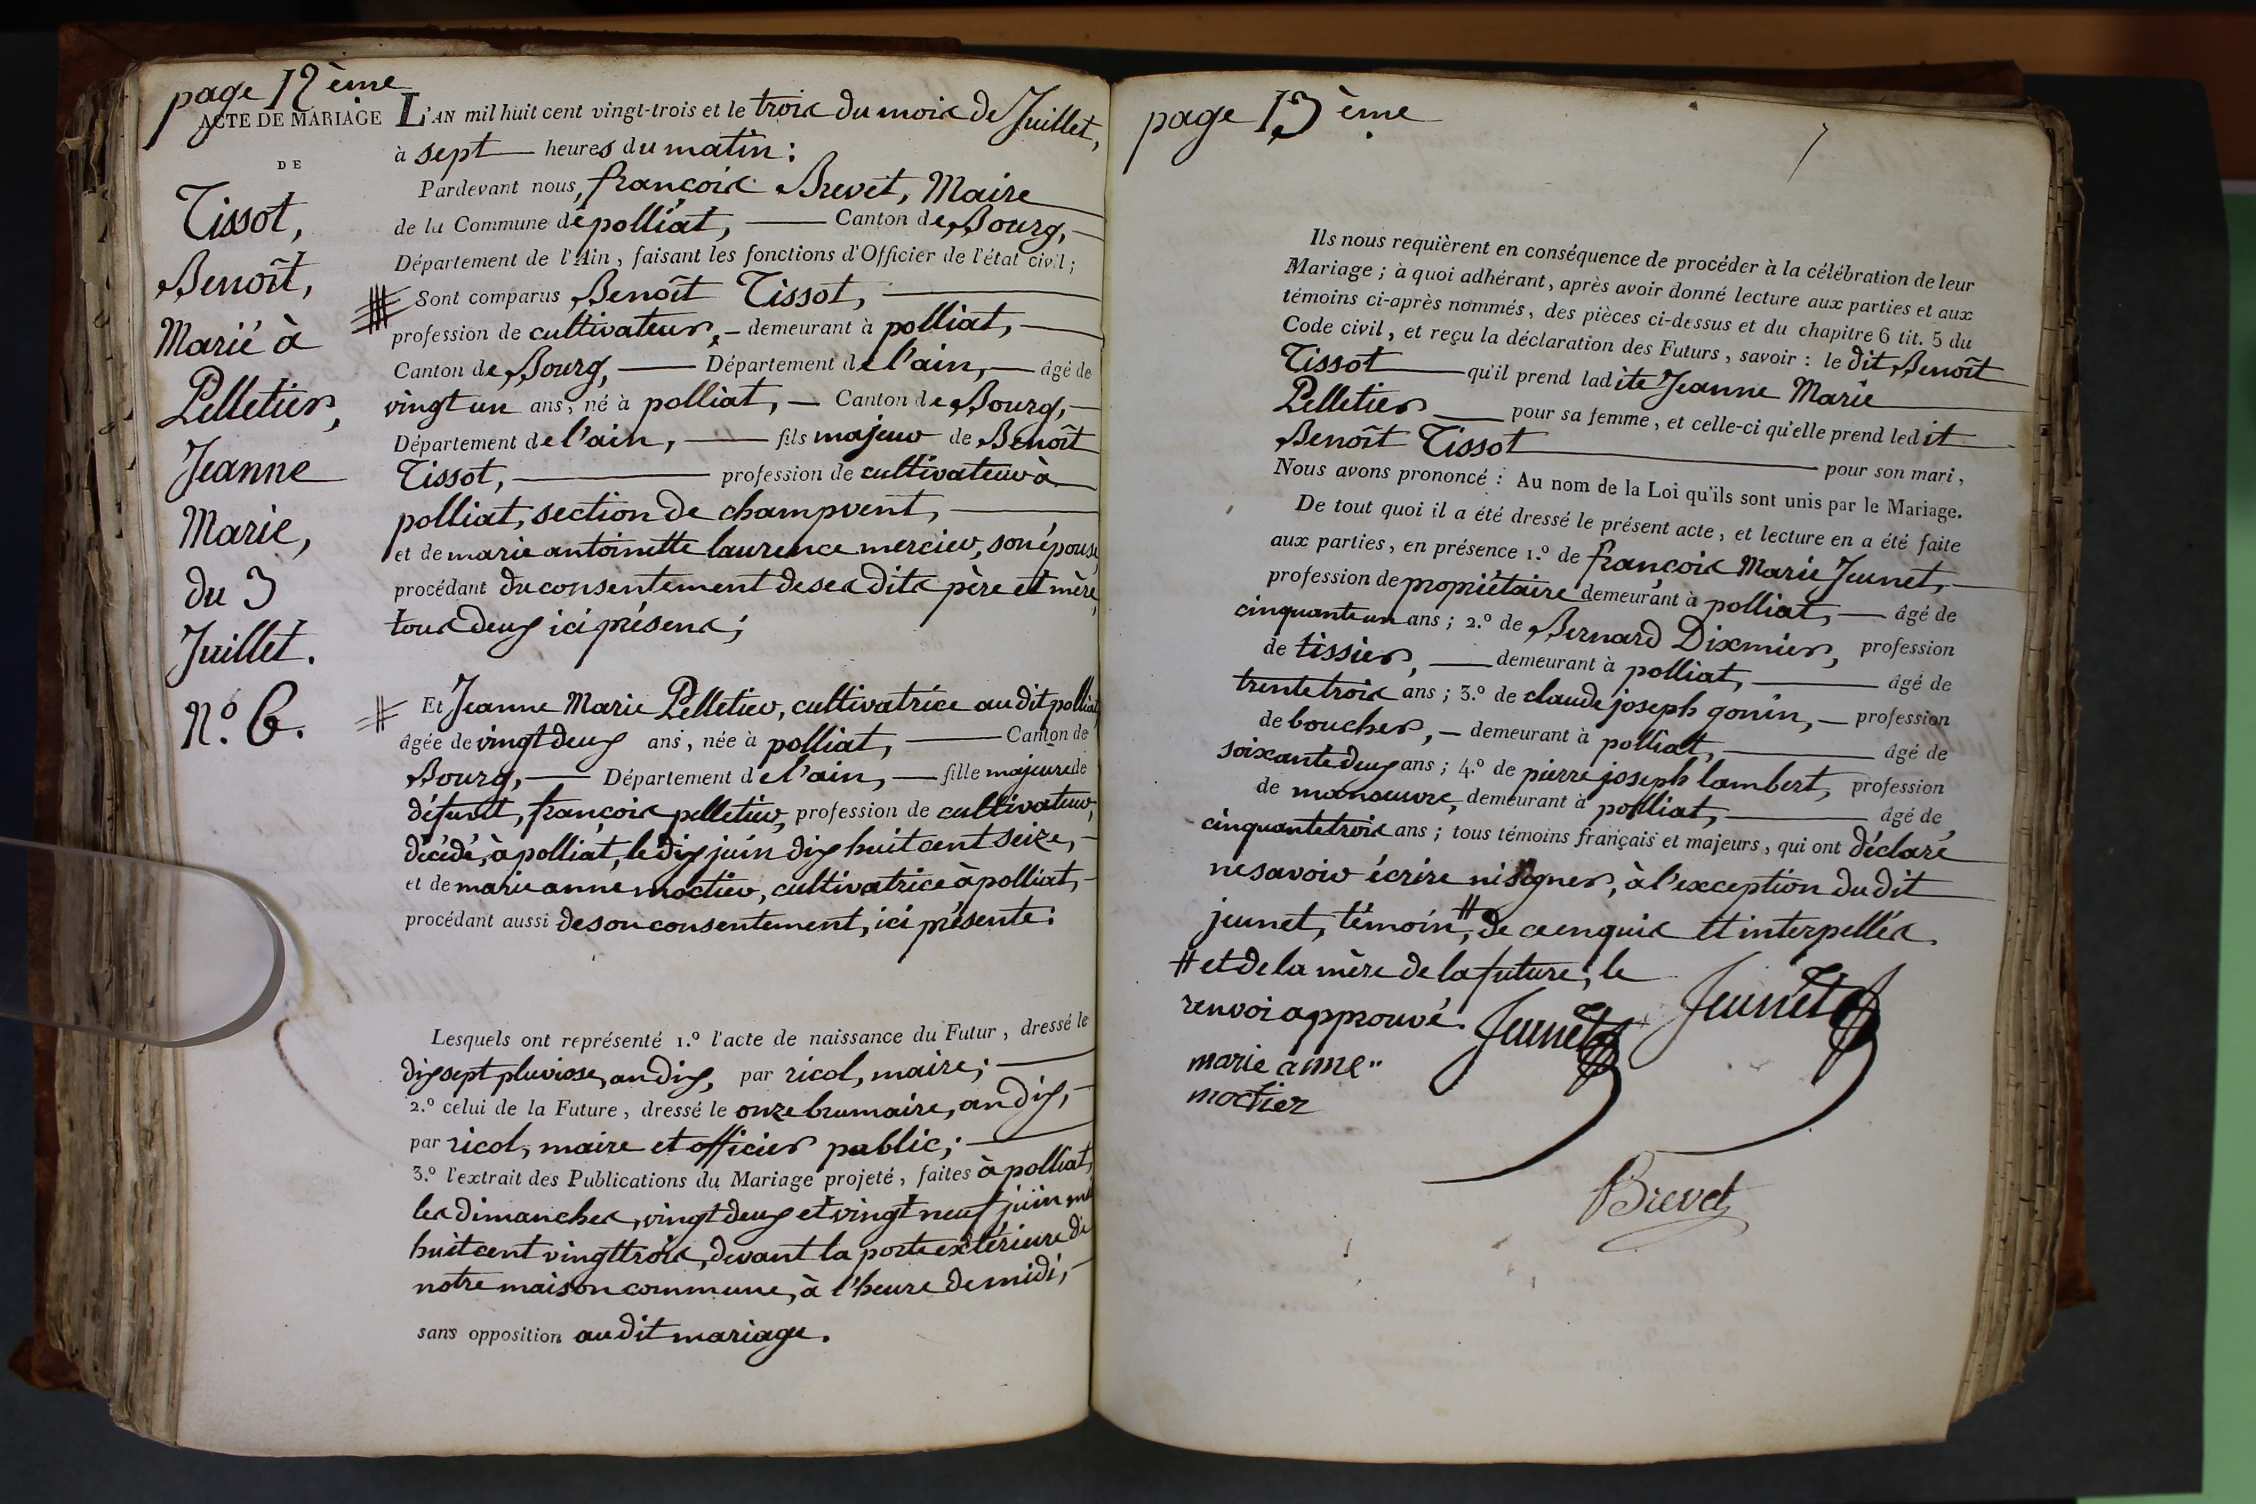 page 12ème
ACTE DE MARIAGE
DE
Tissot,
Benoît,
Marié à
Pelletier,
Jeanne
Marie,
du 3
Juillet.
N.º 6.
L'AN mil huit cent vingt-trois et le trois du mois de Juillet,
à sept heures du matin :
Pardevant nous, françois Brevet, Maire
de la Commune de polliat, Canton de Bourg,
Département de l'Ain, faisant les fonctions d'Officier de l'état civil ;
Sont comparus Benoît Tissot,
profession de cultivateur, demeurant à polliat,
Canton de Bourg, Département de l'ain, âgé de
vingt un ans, né à polliat, Canton de Bourg,
Département de l'ain, fils majeur de Benoît
Tissot, profession de cultivateur à
polliat, section de champvent,
et de marie antoinette laurence mercier, son épouse,
procédant du consentement de ses dits père et mère,
tous deux ici présens ;
Et Jeanne Marie Pelletier, cultivatrice au dit polliat
âgée de vingt deux ans, née à polliat, Canton de
Bourg, Département de l'ain, fille majeure de
défunt, françois pelletier, profession de cultivateur,
décédé, à polliat, le dix juin dix huit cent seize,
et de marie anne moctier, cultivatrice à polliat,
procédant aussi de son consentement, ici présente :
Lesquels ont représenté 1.º l'acte de naissance du Futur, dressé le
dix sept pluviose, an dix, par ricol, maire ;
2.º celui de la Future, dressé le onze brumaire, an dix,
par ricol, maire et officier public ;
3.º l'extrait des Publications du Mariage projeté, faites à polliat,
les dimanches, vingt deux et vingt neuf juin mil
huit cent vingt trois, devant la porte extérieure de
notre maison commune, à l'heure de midi,
sans opposition au dit mariage.
page 13ème
7
Ils nous requièrent en conséquence de procéder à la célébration de leur
Mariage ; à quoi adhérant, après avoir donné lecture aux parties et aux
témoins ci-après nommés, des pièces ci-dessus et du chapitre 6 tit. 5 du
Code civil, et reçu la déclaration des Futurs, savoir : le dit Benoît
Tissot qu'il prend ladite Jeanne Marie
Pelletier pour sa femme, et celle-ci qu'elle prend ledit
Benoît Tissot pour son mari,
Nous avons prononcé : Au nom de la Loi qu'ils sont unis par le Mariage.
De tout quoi il a été dressé le présent acte, et lecture en a été faite
aux parties, en présence 1.º de françois Marie Jeunet,
profession de propriétaire demeurant à polliat, âgé de
cinquante un ans ; 2.º de Bernard Dixmier, profession
de tissier, demeurant à polliat, âgé de
trente trois ans ; 3.º de claude joseph gonin, profession
de boucher, demeurant à polliat, âgé de
soixante deux ans ; 4.º de pierre joseph lambert, profession
de manoeuvre, demeurant à polliat, âgé de
cinquante trois ans ; tous témoins français et majeurs, qui ont déclaré
ne savoir écrire ni signer, à l'exception du dit
jeunet, témoin, # de ce enquis et interpellés.
# et de la mère de la future ; le
renvoi approuvé. Jeunet Jeunet
marie anne
moctier
Brevet